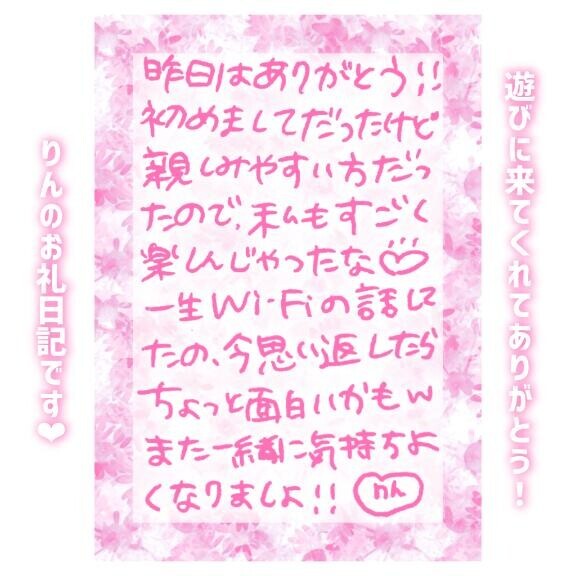 遊びに来てくれてありがとう！
昨日はありがとう!!
初めましてだったけど
親しみやすい方だっ
たので、私もすごく
楽しんじゃったな♡
一生Wi-Fiの話して
たの、今思い返したら
ちょっと面白いかもw
また一緒に気持ちよ
くなりましょ!!
りん
りんのお礼日記です♥